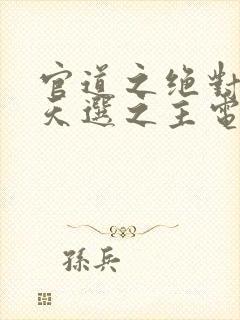 官道之绝對
天選之主電
孫兵